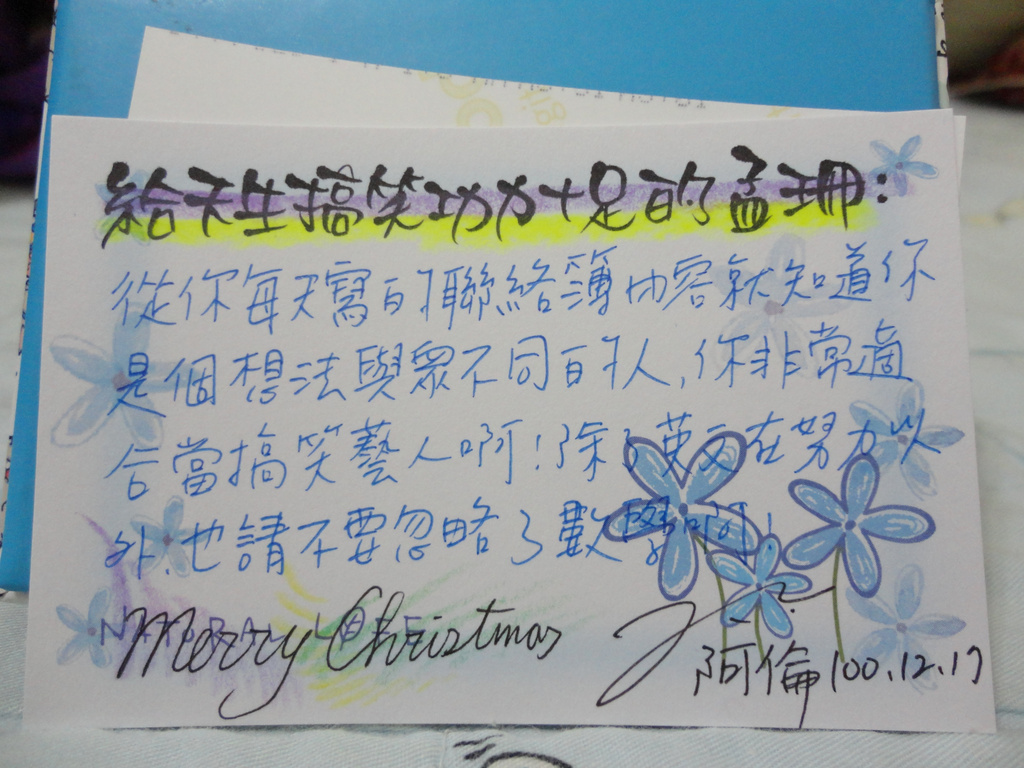 給天生搞笑功力十足的孟珊:
從你每天寫的聯絡簿內容就知道你
是個想法與眾不同的人,你非常適
合當搞笑藝人啊!除了英文在努力以
外,也請不要忽略了數學啊!
NATURAL
Merry Christmas
阿倫 100.12.17